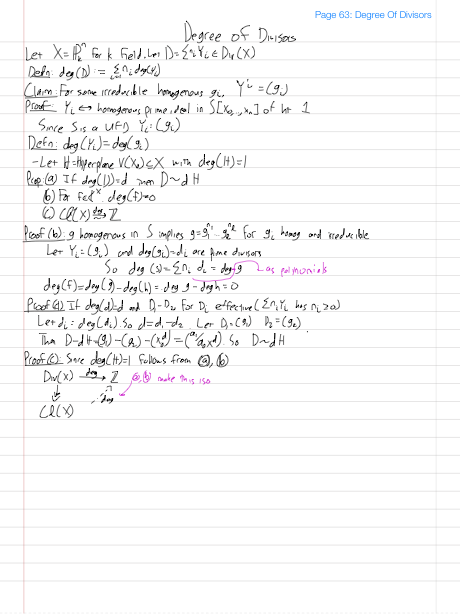 Page 63: Degree Of Divisors
Degree of Divisors
Let X=ℙ^n_k for k field. Let D=Σn_iY_i ∈ Div(X)
Defn: deg(D) := Σn_i deg(Y_i)
Claim: For some irreducible homogenous g_i, Y_i = (g_i)
Proof: Y_i ↔ homogenous prime ideal in S[x_0,..,x_n] of ht 1
Since S is a UFD Y_i=(g_i)
Defn: deg(Y_i)=deg(g_i)
-Let H=Hyperplane V(x_0)⊆X with deg(H)=1
Prop: (a) If deg(D)=d then D~dH
(b) For f∈K^x deg(f)=0
(c) Cl(X) deg→ ℤ
Proof(b): g homogenous in S implies g=g_1^{n_1}...g_l^{n_l} for g_i homog and irreducible
Let Y_i=(g_i) and deg(g_i)=d_i are prime divisors
So deg(g)=Σn_i d_i = deg g as polynomials
deg(f)=deg(g)-deg(h)=deg g-deg h=0
Proof(a) If deg(d)=d and D_1-D_2, for D_i effective (Σn_iY_i has n_i≥0)
Let d_i=deg(D_i). So d=d_1-d_2. Let D_1=(g_1) D_2=(g_2)
Then D-dH=(g_1)-(g_2)-(x_0^d)=(g_1/g_2x_0^d). So D~dH
Proof(c): Since deg(H)=1 follows from (a), (b)
Div(X) deg→ ℤ (a,b) make this iso
↓ deg
Cl(X)